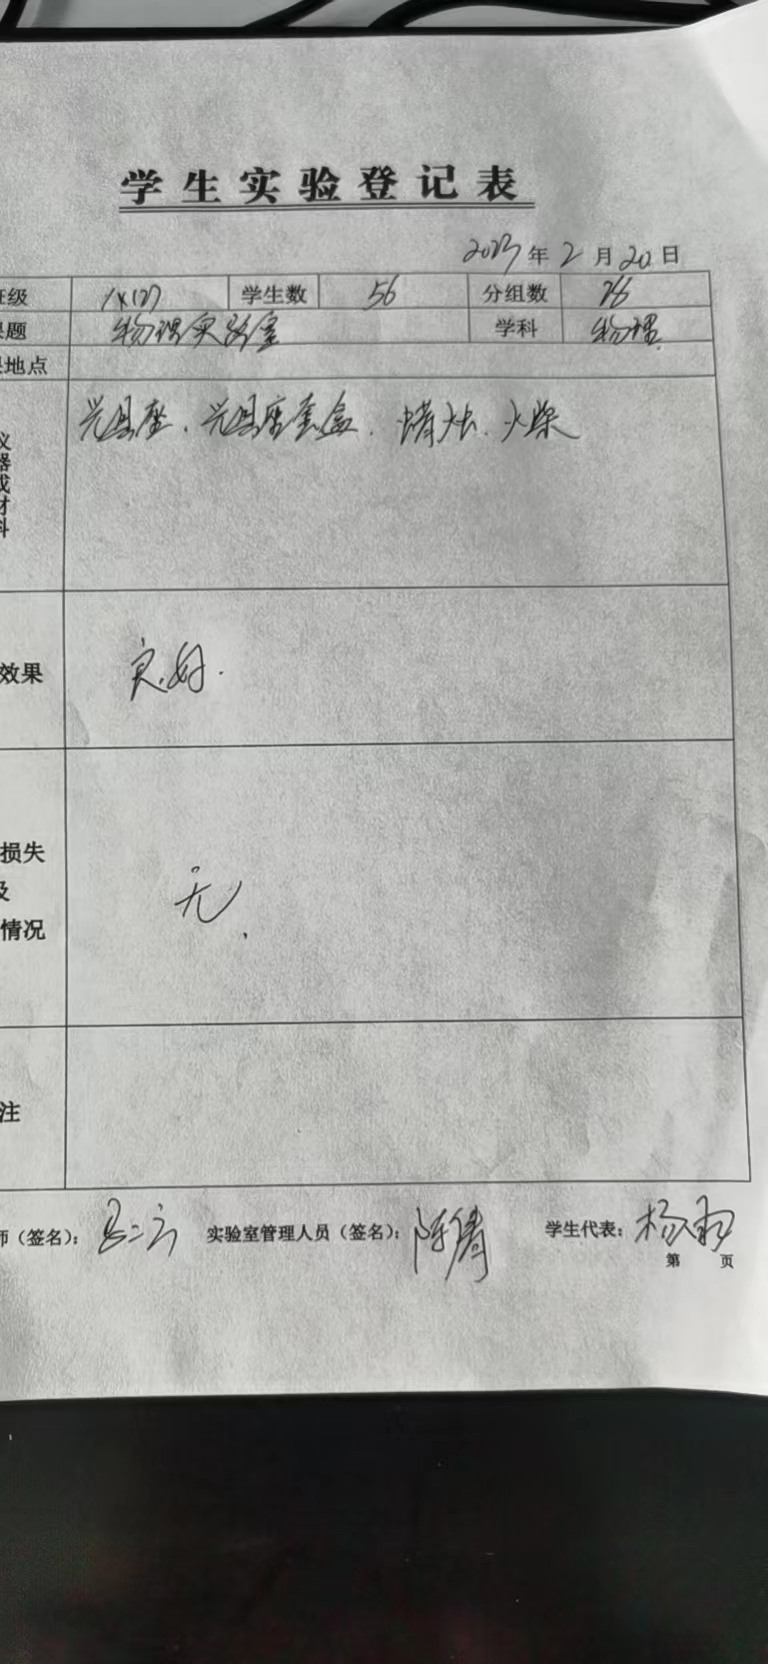 学生实验登记表
2023年2月20日
班级 学生数 56 分组数
课题 物理实验室 学科 物理
地点
光具座、光具座套盒、蜡烛、火柴
仪
器
或
材
料
效果 良好.
损失
及
情况
无.
注
师（签名）： 实验室管理人员（签名）：陈倩 学生代表：杨
第 页